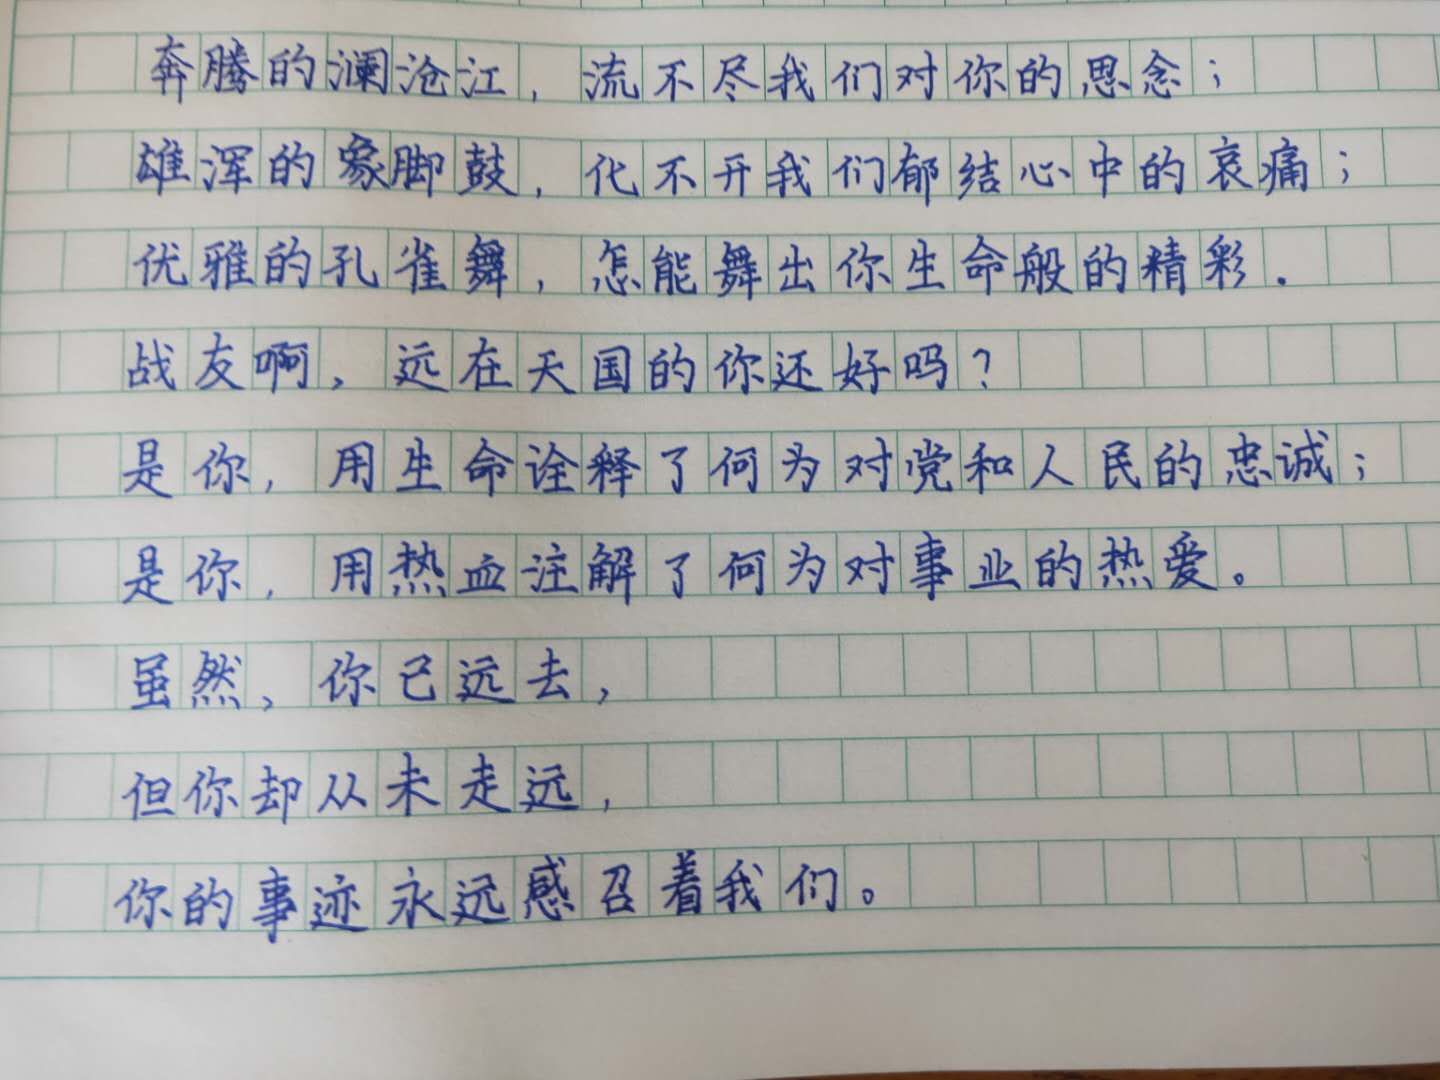 奔腾的澜沧江，流不尽我们对你的思念；
雄浑的象脚鼓，化不开我们郁结心中的哀痛；
优雅的孔雀舞，怎能舞出你生命般的精彩．
战友啊，远在天国的你还好吗？
是你，用生命诠释了何为对党和人民的忠诚；
是你，用热血注解了何为对事业的热爱。
虽然，你已远去，
但你却从未走远，
你的事迹永远感召着我们。